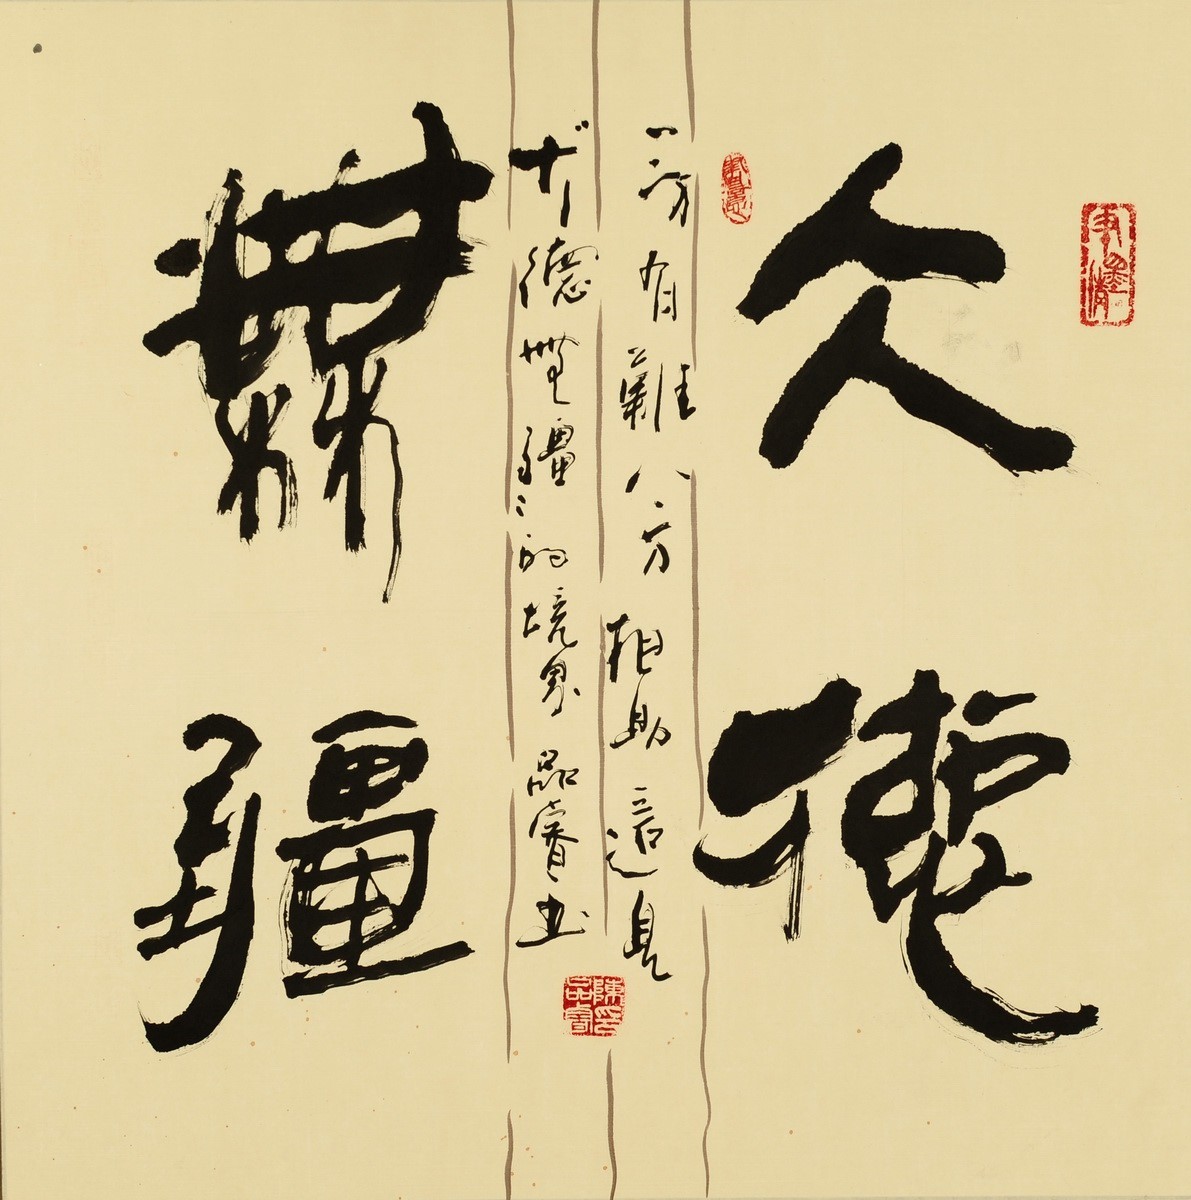 大德
無疆
一方有難八方相助這是
德無疆的境界品睿書
陳品睿印